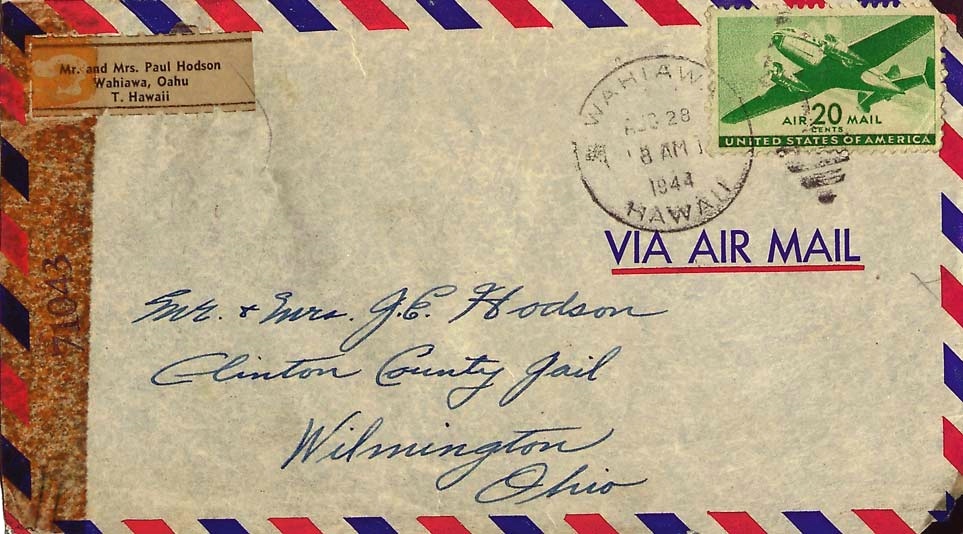 Mr. and Mrs. Paul Hodson
Wahiawa, Oahu
T. Hawaii
WAHIAWA
AUG 28
8 AM
1944
HAWAII
AIR 20 MAIL
CENTS
UNITED STATES OF AMERICA
VIA AIR MAIL
71043
Mr. & Mrs. J.E. Hodson
Clinton County Jail
Wilmington
Ohio